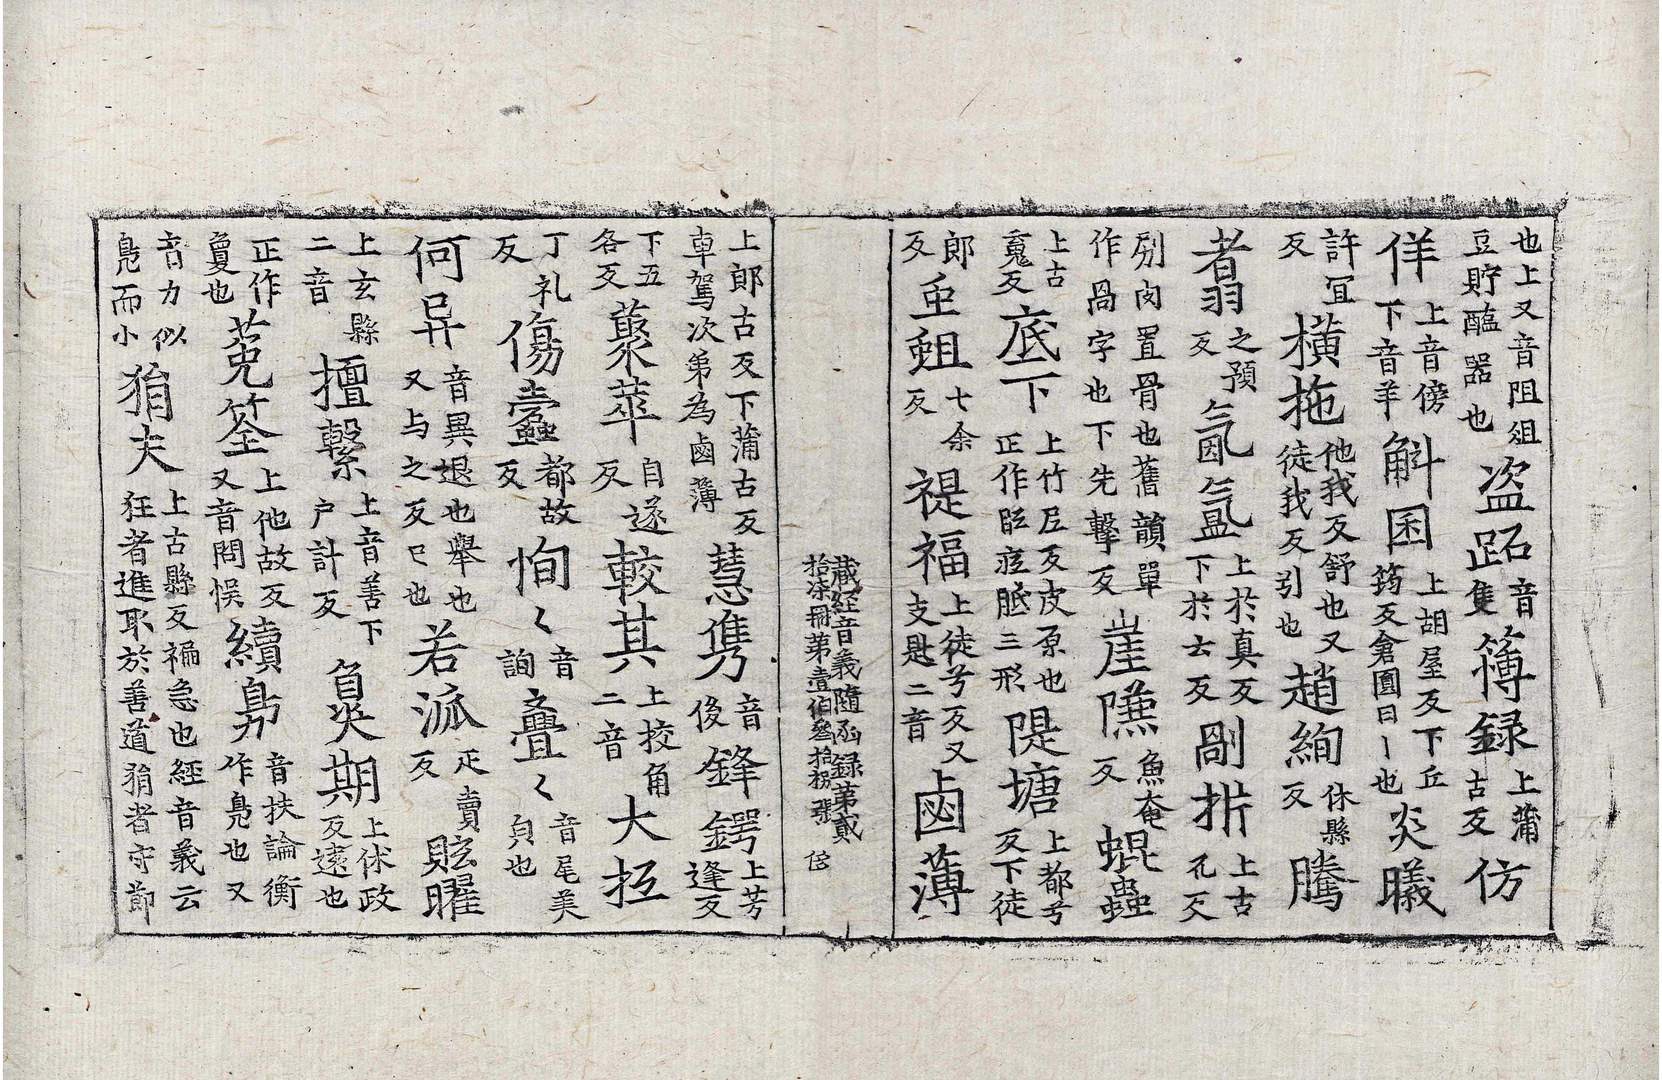 也上又音阻俎豆貯醢器也盗跖音隻簿録上蒲古反仿
佯上音傍下音羊斛囷上胡屋反下丘筠反倉圎曰丨也炎曦
許冝反橫拖他我反舒也又徒我反引也趙絢休縣反騰
翥之預反氤氲上於真反下於云反剛𣂪上古孔反
剐肉置骨也舊韻單作咼字也下先擊反崖㕒魚奄反蜫蟲
上古䰟反底下上竹尼反皮厚也正作胝㡳胵三形隄塘上都兮反下徒
郎反䖝蛆七余反禔福上徒兮反又支匙二音鹵薄
藏經音義隨函録第貳拾柒冊第壹伯叁拾捌張
上郎古反下蒲古反車駕次第為鹵簿慧隽音後鋒鍔上芳逢反
下五各反藂萃自遂反較其上挍角二音大抵
丁礼反傷蠧都故反恂〻音詢亹〻音尾美皃也
何异音異退也舉也又与之反已也若派疋賣反眩曜
上玄縣二音擅繫上音善下户計反負𤆍期上休政反逺也
正作敻也菟筌上他故反又音問悮續鳧音扶論衡作鳬也又
音力似鳬而小狷夫上古縣反褊急也經音義云狂者進取於善道狷者守節